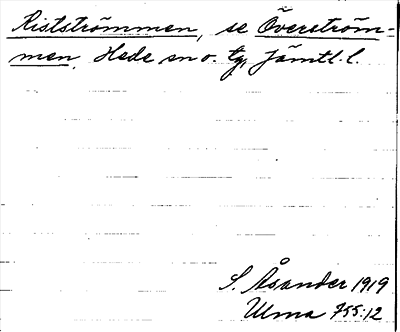 Ristströmmen, se Överström-
men, Hede sn o. tg, Jämtl. l.
S. Åsander 1919
Ulma 755:12